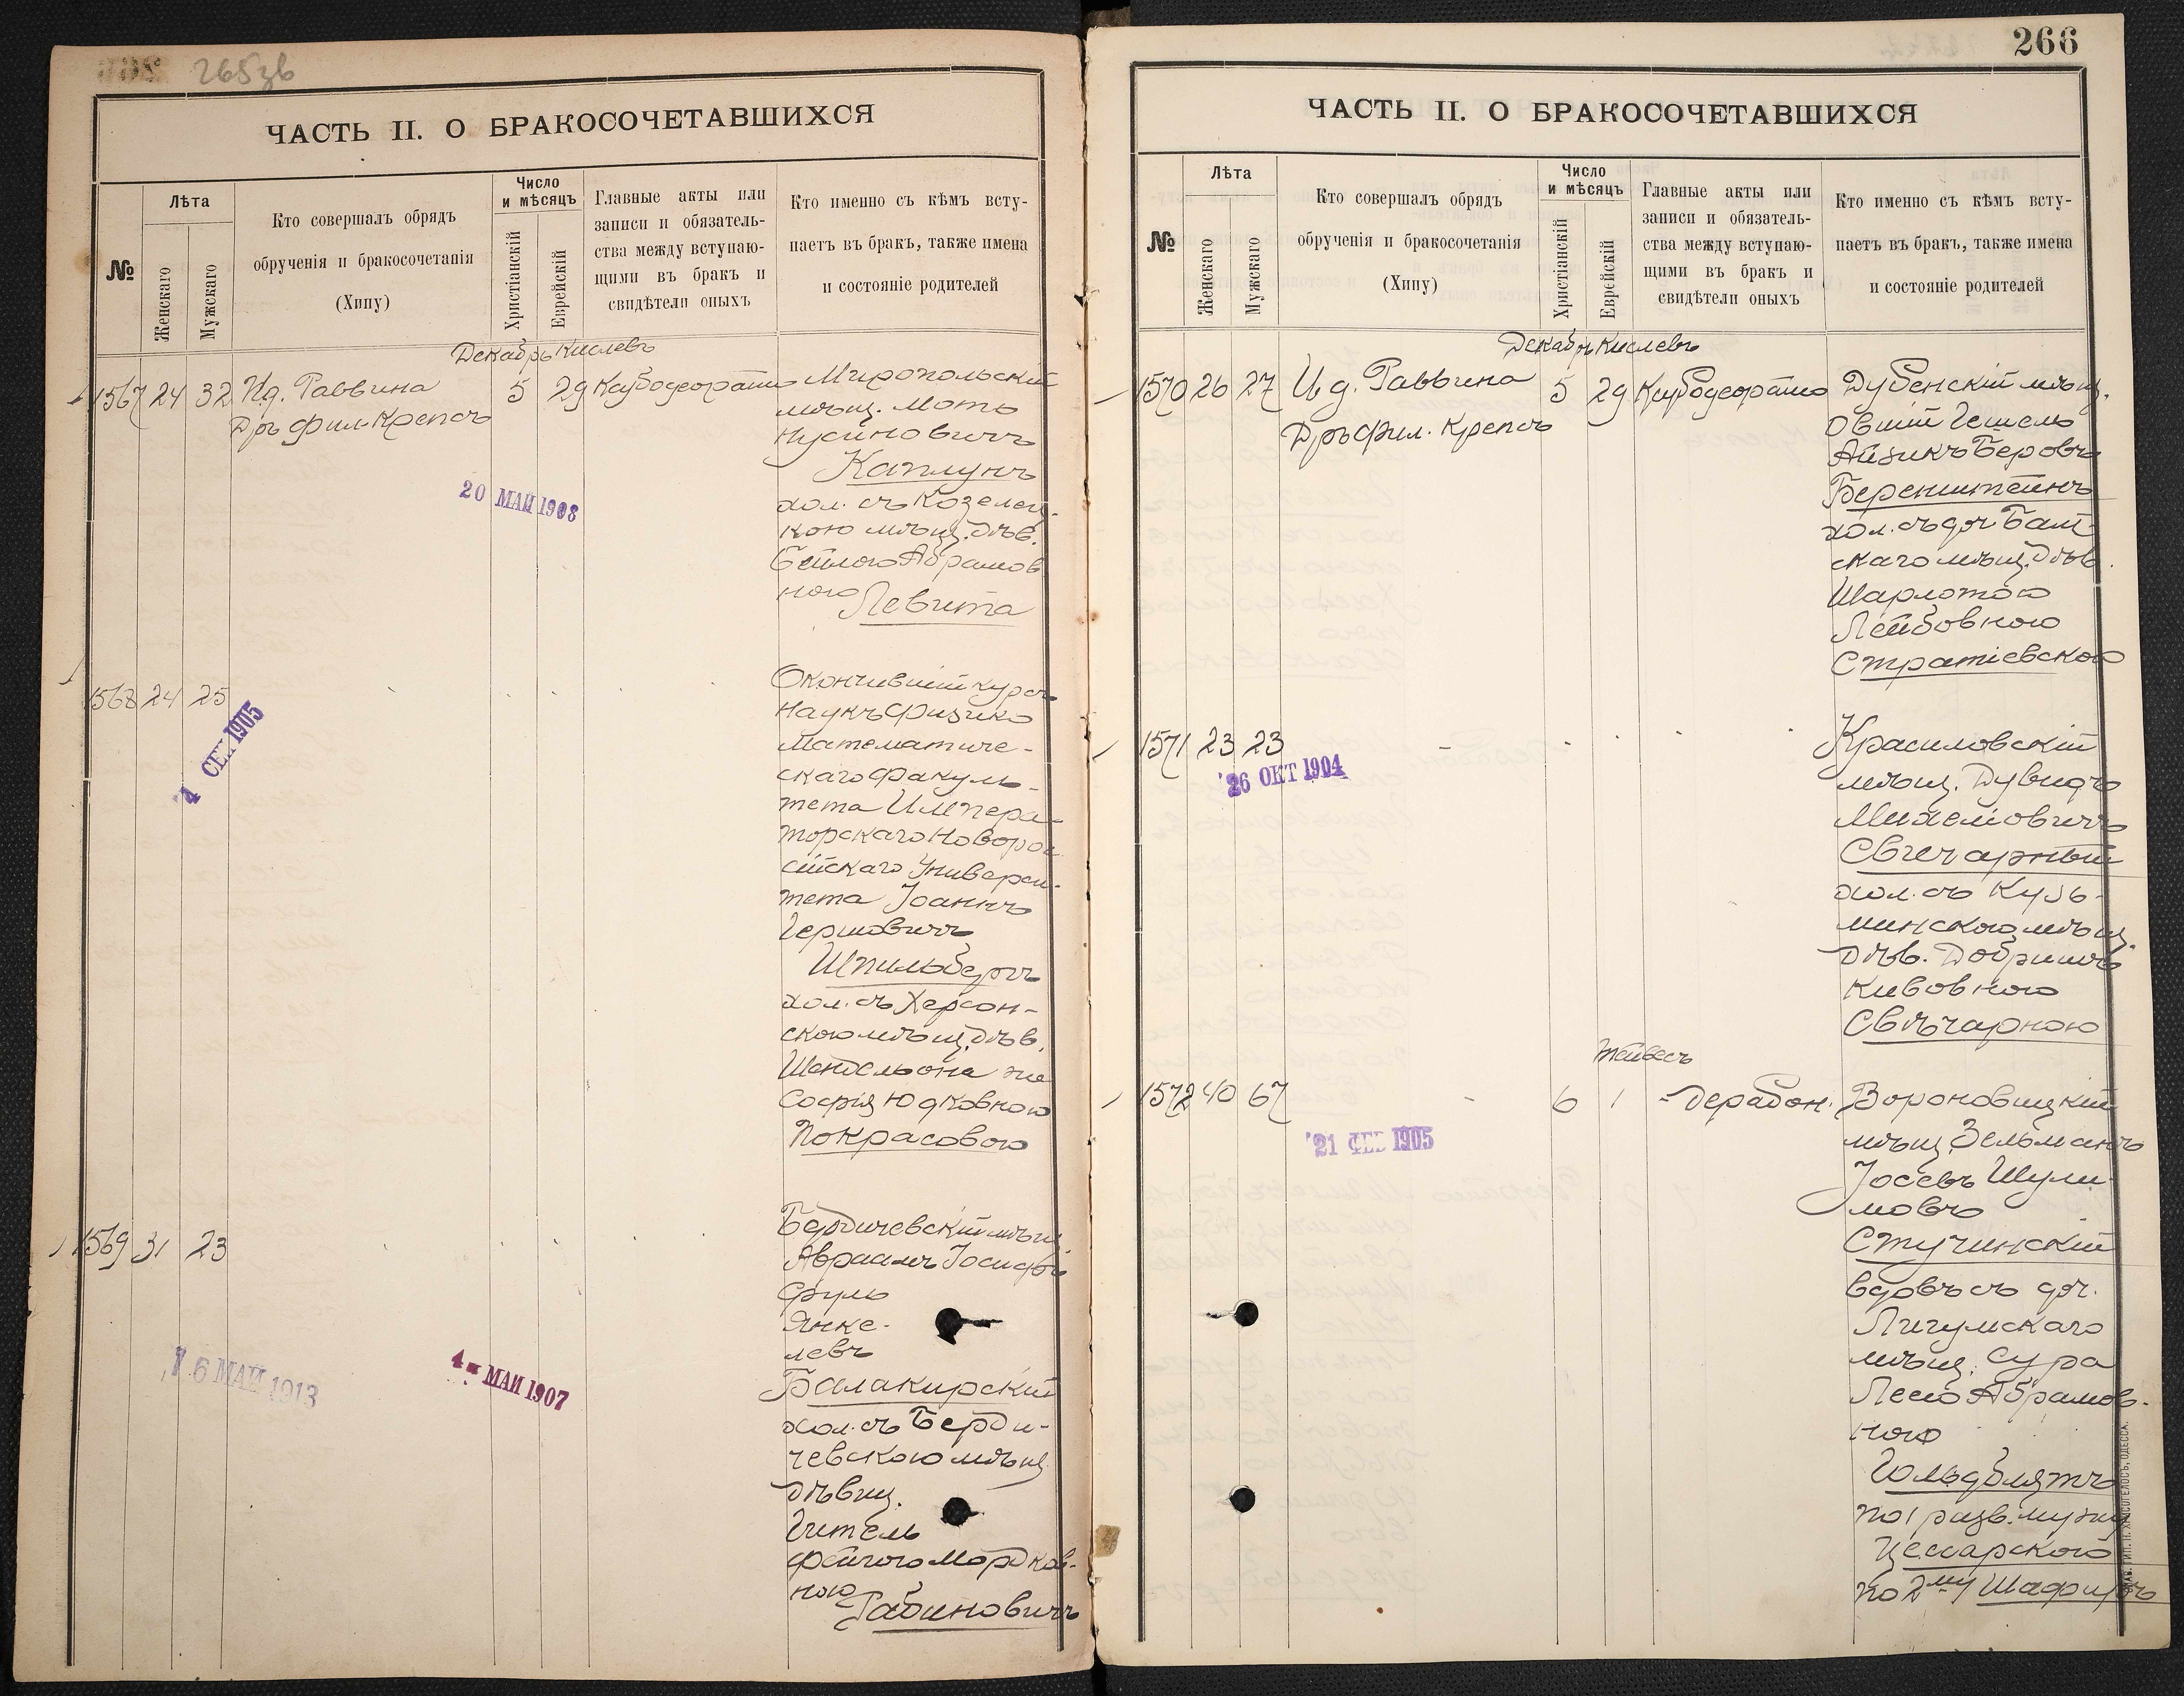 265 зв
ЧАСТЬ II. О БРАКОСОЧЕТАВШИХСЯ
№
Лѣта
Женскаго
Мужскаго
Кто совершалъ обрядъ
обрученія и бракосочетанія
(Хипу)
Число
и мѣсяцъ
Христіанскій
Еврейскій
Главные акты или
записи и обязатель-
ства между вступаю-
щими въ бракъ и
свидѣтели оныхъ
Кто именно съ кѣмъ всту-
паетъ въ бракъ, также имена
и состояніе родителей
Декабрь Кислевъ
1567 24 32 И.д. Раввина 5 29
Дръ фил. Крепсъ
Миропольскій
мѣщ. Мотъ
Нусиновичъ
Каплунъ
хол. съ Козелец-
кою мѣщ. дѣв.
Бейлою Абрамов
ною Левита
20 МАЙ 1908
1568 24 25
СЕН 1905
Окончившій курсъ
Наукъ Физико
Математиче-
скаго факуль-
тета Импера-
торскаго Новорос
сійскаго Универси-
тета Іоаннъ
Гершовичъ
Шпильбергъ
хол. съ Херсон-
скою мѣщ. дѣв.
Шендель она же
Софія Юдковною
Покрасовою
1569 31 23
Бердичевскій мѣщ.
Авраамъ Іосифъ
Сруль
Янке-
левъ
Балакирскій
хол. съ Берди-
чевскою мѣщ.
дѣвиц.
Гитель
Фейгою Мордков-
ною Рабиновичъ
16 МАЙ 1913
4 - МАЙ 1907
266
ЧАСТЬ II. О БРАКОСОЧЕТАВШИХСЯ
№
Лѣта
Женскаго
Мужскаго
Кто совершалъ обрядъ
обрученія и бракосочетанія
(Хипу)
Число
и мѣсяцъ
Христіанскій
Еврейскій
Главные акты или
записи и обязатель-
ства между вступаю-
щими въ бракъ и
свидѣтели оныхъ
Кто именно съ кѣмъ всту-
паетъ въ бракъ, также имена
и состояніе родителей
Декабрь Кислевъ
1570 26 27 И.д. Раввина 5 29
Дръ фил. Крепсъ
Дубенскій мѣщ.
Овшій Гешель
Айзикъ Беровъ
Беренштейнъ
хол. съ доч. Балт-
скаго мѣщ. дѣв.
Шарлотою
Лейбовною
Стратіевскою
1571 23 23
26 ОКТ 1904
Красиловскій
мѣщ. Дувидъ
Михелиовичъ
Свечарный
хол. съ Кузь-
минскою мѣщ.
дѣв. Добришъ
Кивовною
Свѣчарною
Тейвесъ
1572 40 67 6 1
21 ФЕВ 1905
Вороновицкій
мѣщ. Зельманъ
Іосевъ Шули-
мовъ
Стучинскій
вдовъ съ доч.
Лигумскаго
мѣщ. Сура
Лею Абрамов-
ною
Гольдблятъ
по 1 разв. мужу
Цесарского
по 2му Шафиръ